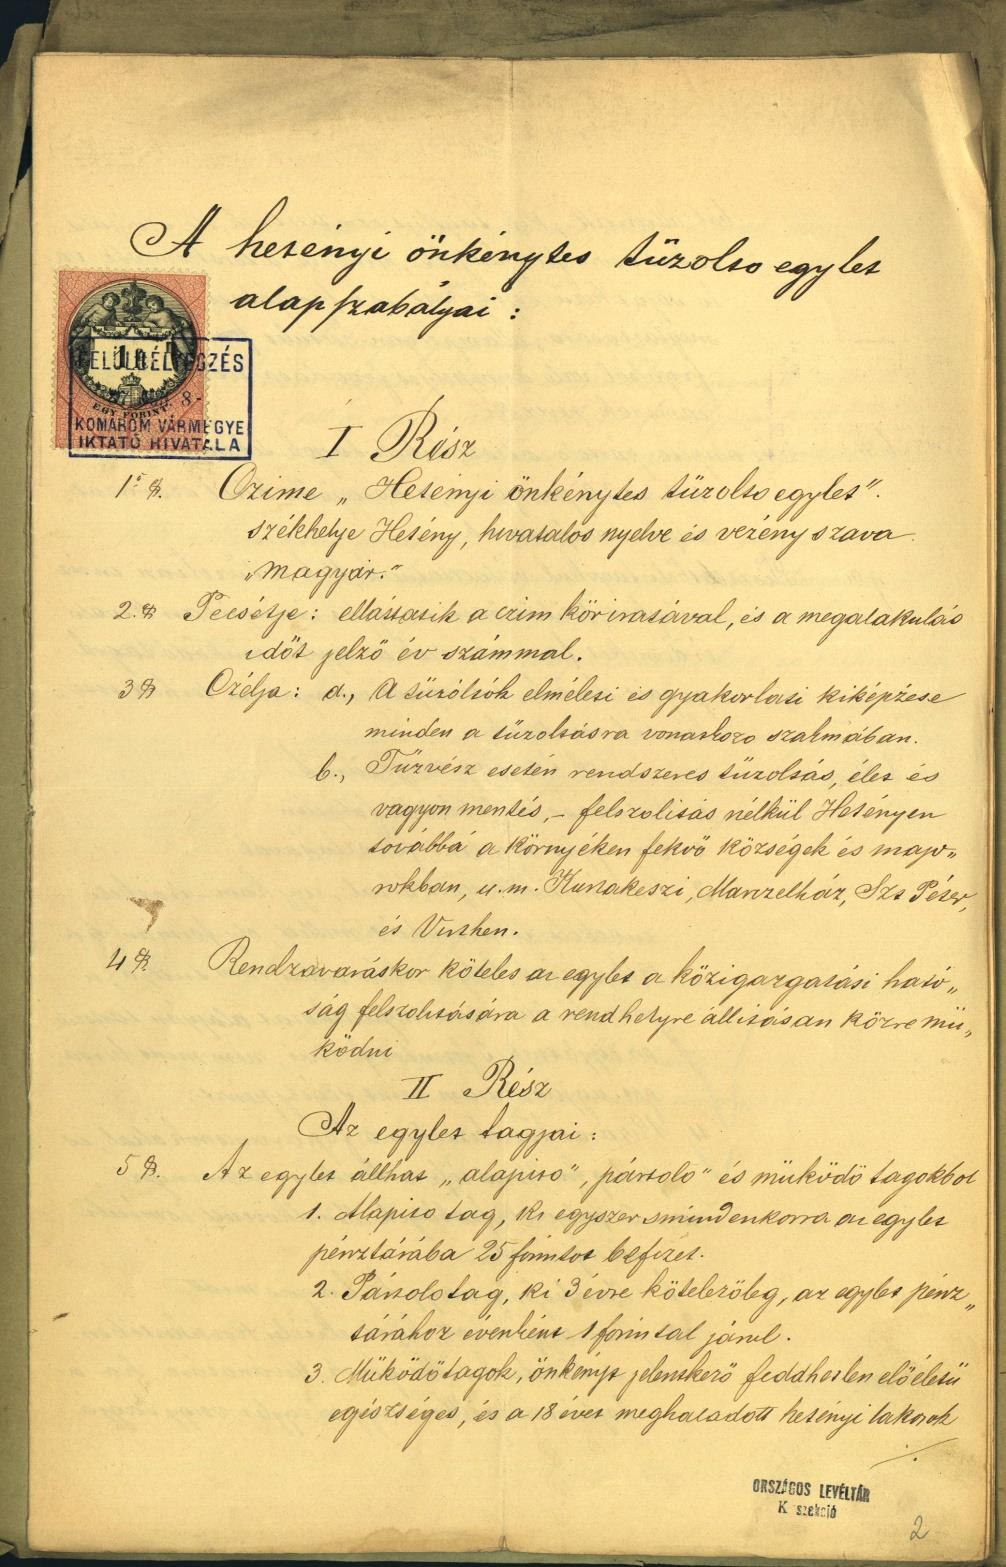 A hetényi önkénytes tűzolto egylet
alapszabályai :
1
EGY FORINT
8-
FELÜLBÉLYEGZÉS
KOMÁROM VÁRMEGYE
IKTATÓ HIVATALA
I Rész
1 §. Czime „Hetényi önkénytes tűzolto egylet".
székhelye Hetény, hivatalos nyelve és vezény szava
„magyar."
2. § Pecsétje : elláttatik a czim köriratával, és a megalakulás
időt jelző év számmal.
3 § Czélja : a., A tűzóltók elméleti és gyakorlati kiképzése
minden a tűzoltásra vonatkozo szakmában.
b., Tűzvész esetén rendszeres tűzoltás, élet és
vagyon mentés, – felszolitás nélkül Hetényen
továbbá a környéken fekvő községek és majo„
rokban, u.m. Kurtakeszi, Manzelház, Szt Péter,
és Virthen.
4 §. Rendzavaráskor köteles az egylet a közigazgatási ható„
ság felszolitására a rend helyre állitásan közre mű„
ködni
II Rész
Az egylet tagjai :
5 §. Az egylet állhat „alapito", pártolo" és működő tagokbol
1. Alapito tag, ki egyszersmindenkorra az egylet
pénztárába 25 forintot befizet.
2. Pártolo tag, ki 3 évre kötelezőleg, az egylet pénz„
tárához évenként 1 forintal járul.
3. Működő tagok, önkényt jelentkező feddhetlen előéletű
egészséges, és a 18 évet meghaladott hetényi lakosok
ORSZÁGOS LEVÉLTÁR
K szekció
2